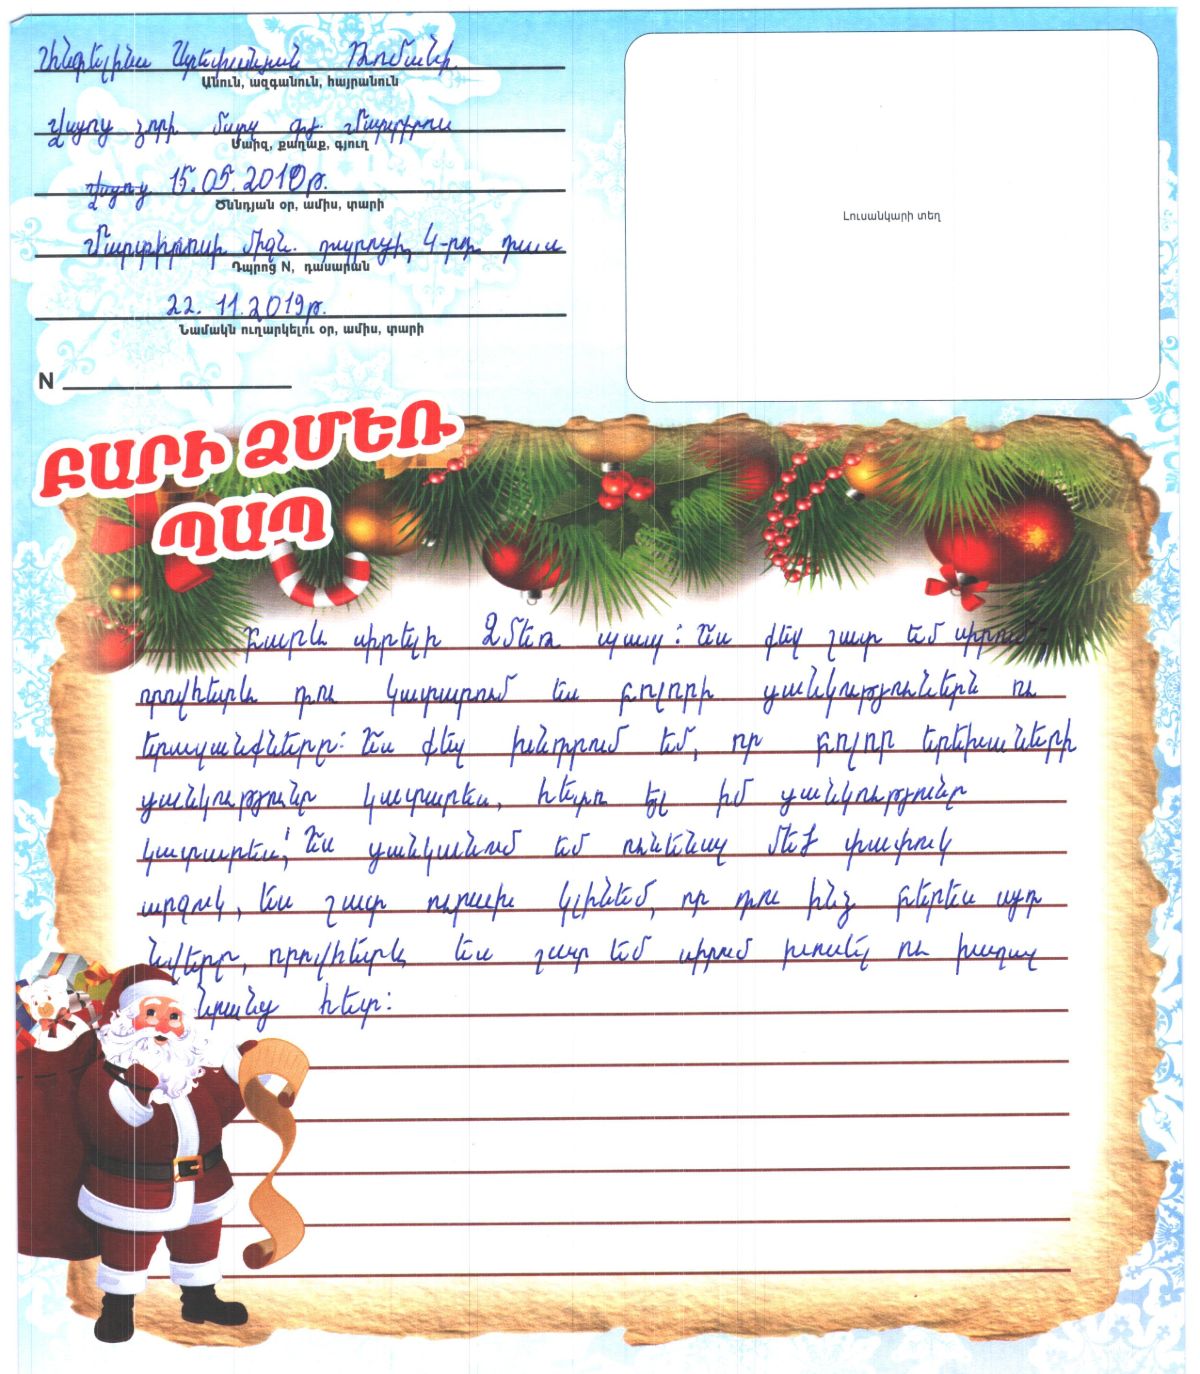 Անջելինա Ստեփանյան Ռոմանի
Անուն, ազգանուն, հայրանուն
Վայոց ձորի մարզ գյ. Մարտիրոս
Մարզ, քաղաք, գյուղ
15.05.2010թ.
Ծննդյան օր, ամիս, տարի
Մարտիրոսի միջն. դպրոցի, 4-րդ դաս
Դպրոց N, դասարան
22. 11.2019թ.
Նամակն ուղարկելու օր, ամիս, տարի
N
Լուսանկարի տեղ
ԲԱՐԻ ՁՄԵՌ
ՊԱՊ
Բարև սիրելի Ձմեռ պապ: Ես քեզ շատ եմ սիրում,
որովհետև դու կատարում ես բոլորի ցանկություններն ու
երազանքները: Ես քեզ խնդրում եմ, որ բոլոր երեխաների
ցանկությունը կատարես, հետո էլ իմ ցանկությունը
կատարես: Ես ցանկանում եմ ունենալ մեծ փափուկ
արջուկ, ես շատ ուրախ կլինեմ, որ դու ինձ բերես այդ
նվերը, որովհետև ես շատ եմ սիրում խոսել ու խաղալ
նրանց հետ: